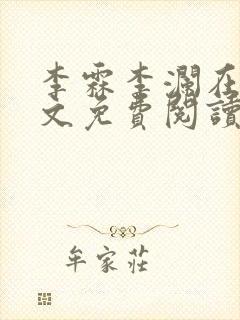 李霖李瀾在
文免費閱讀
牟家莊